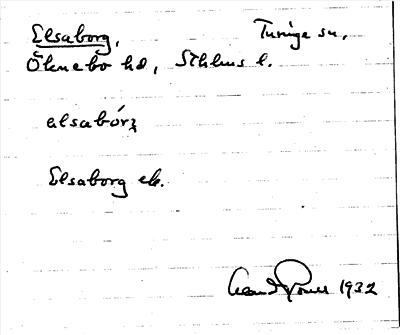 Elsaborg, Turinge sn,
Öknebo hd, Sthlms l.
elsabórj
Elsaborg ek.
1932